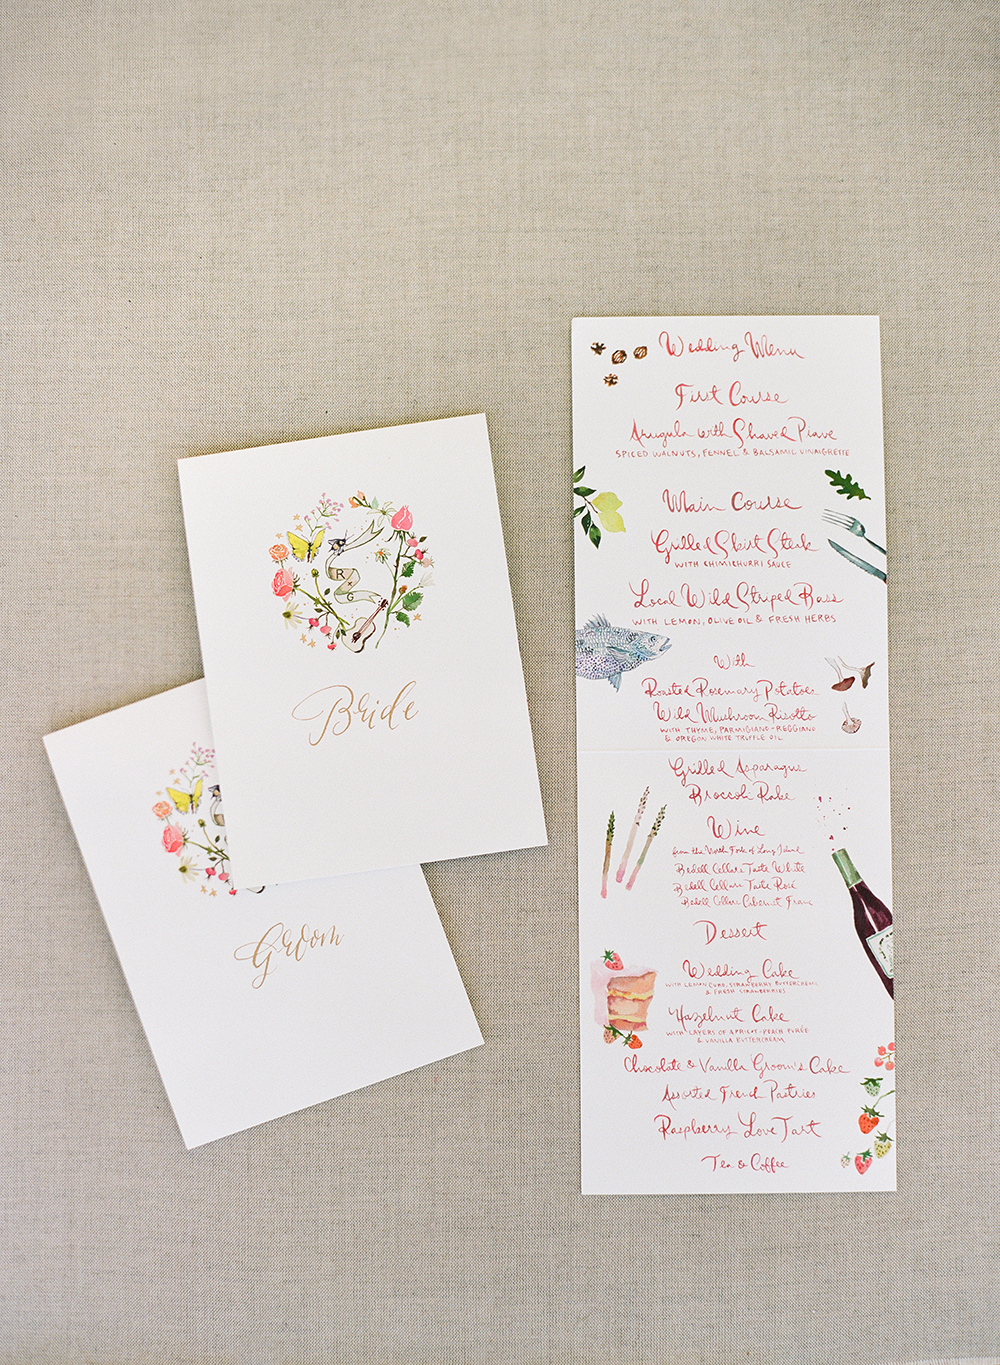 R
+
G
Bride
Groom
Wedding Menu
First Course
Arugula with Shaved Piave
SPICED WALNUTS, FENNEL & BALSAMIC VINAIGRETTE
Main Course
Grilled Skirt Steak
WITH CHIMICHURRI SAUCE
Local Wild Striped Bass
WITH LEMON, OLIVE OIL & FRESH HERBS
With
Roasted Rosemary Potatoes
Wild Mushroom Risotto
WITH THYME, PARMIGIANO-REGGIANO
& OREGON WHITE TRUFFLE OIL
Grilled Asparagus
Broccoli Rabe
Wine
from the North Fork of Long Island
Bedell Cellars Taste White
Bedell Cellars Taste Rosé
Bedell Cellars Cabernet Franc
Dessert
Wedding Cake
WITH LEMON CURD, STRAWBERRY BUTTERCREME
& FRESH STRAWBERRIES
Hazelnut Cake
WITH LAYERS OF APRICOT-PEACH PURÉE
& VANILLA BUTTERCREAM
Chocolate & Vanilla Groom's Cake
Assorted French Pastries
Raspberry Love Tart
Tea & Coffee